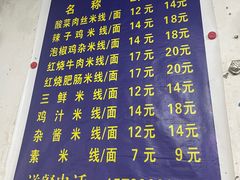 名称
酸菜肉丝米线/面 12元 14元
辣子鸡米线/面 14元 18元
泡椒鸡杂米线/面 14元 18元
红烧牛肉米线/面 17元 20元
红烧肥肠米线/面 17元 20元
三鲜米线/面 12元 14元
鸡汁米线/面 14元 18元
杂酱米线/面 12元 14元
素米线/面 7元 9元